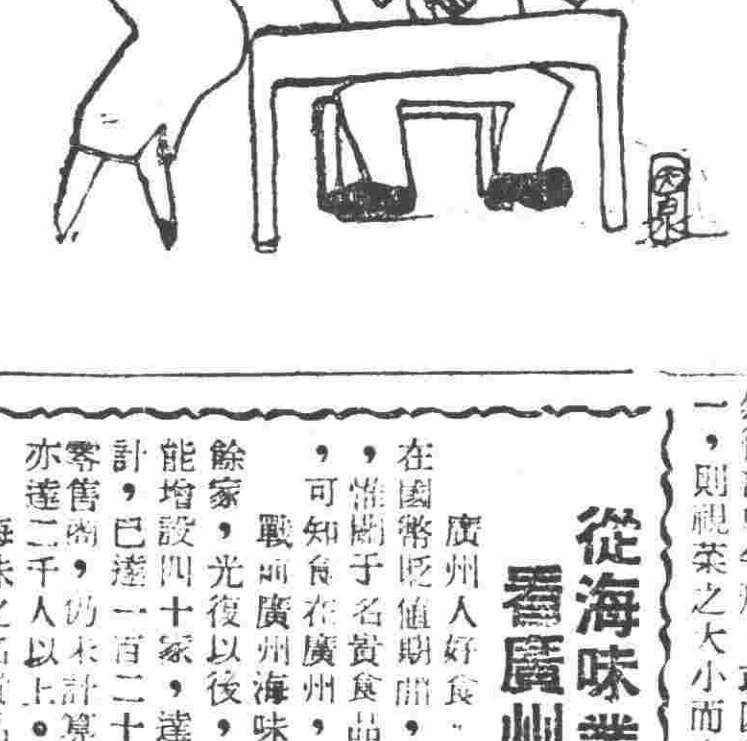 一，則視菜之大小而
從海味業
看廣州
廣州人好食，
在國幣貶值期間，
，惟關于名貴食品
，可知食在廣州，
戰前廣州海味
餘家，光復以後，
能增設四十家，達
計，已達一百二十
零售商，仍未計算
亦達二千人以上。